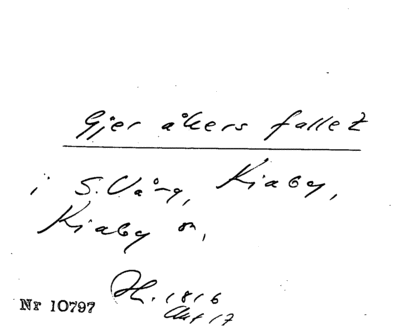 Gjer åkers fallet
i S. Vång, Kiaby,
Kiaby sn,
1816
Akt 17
Nr 10797